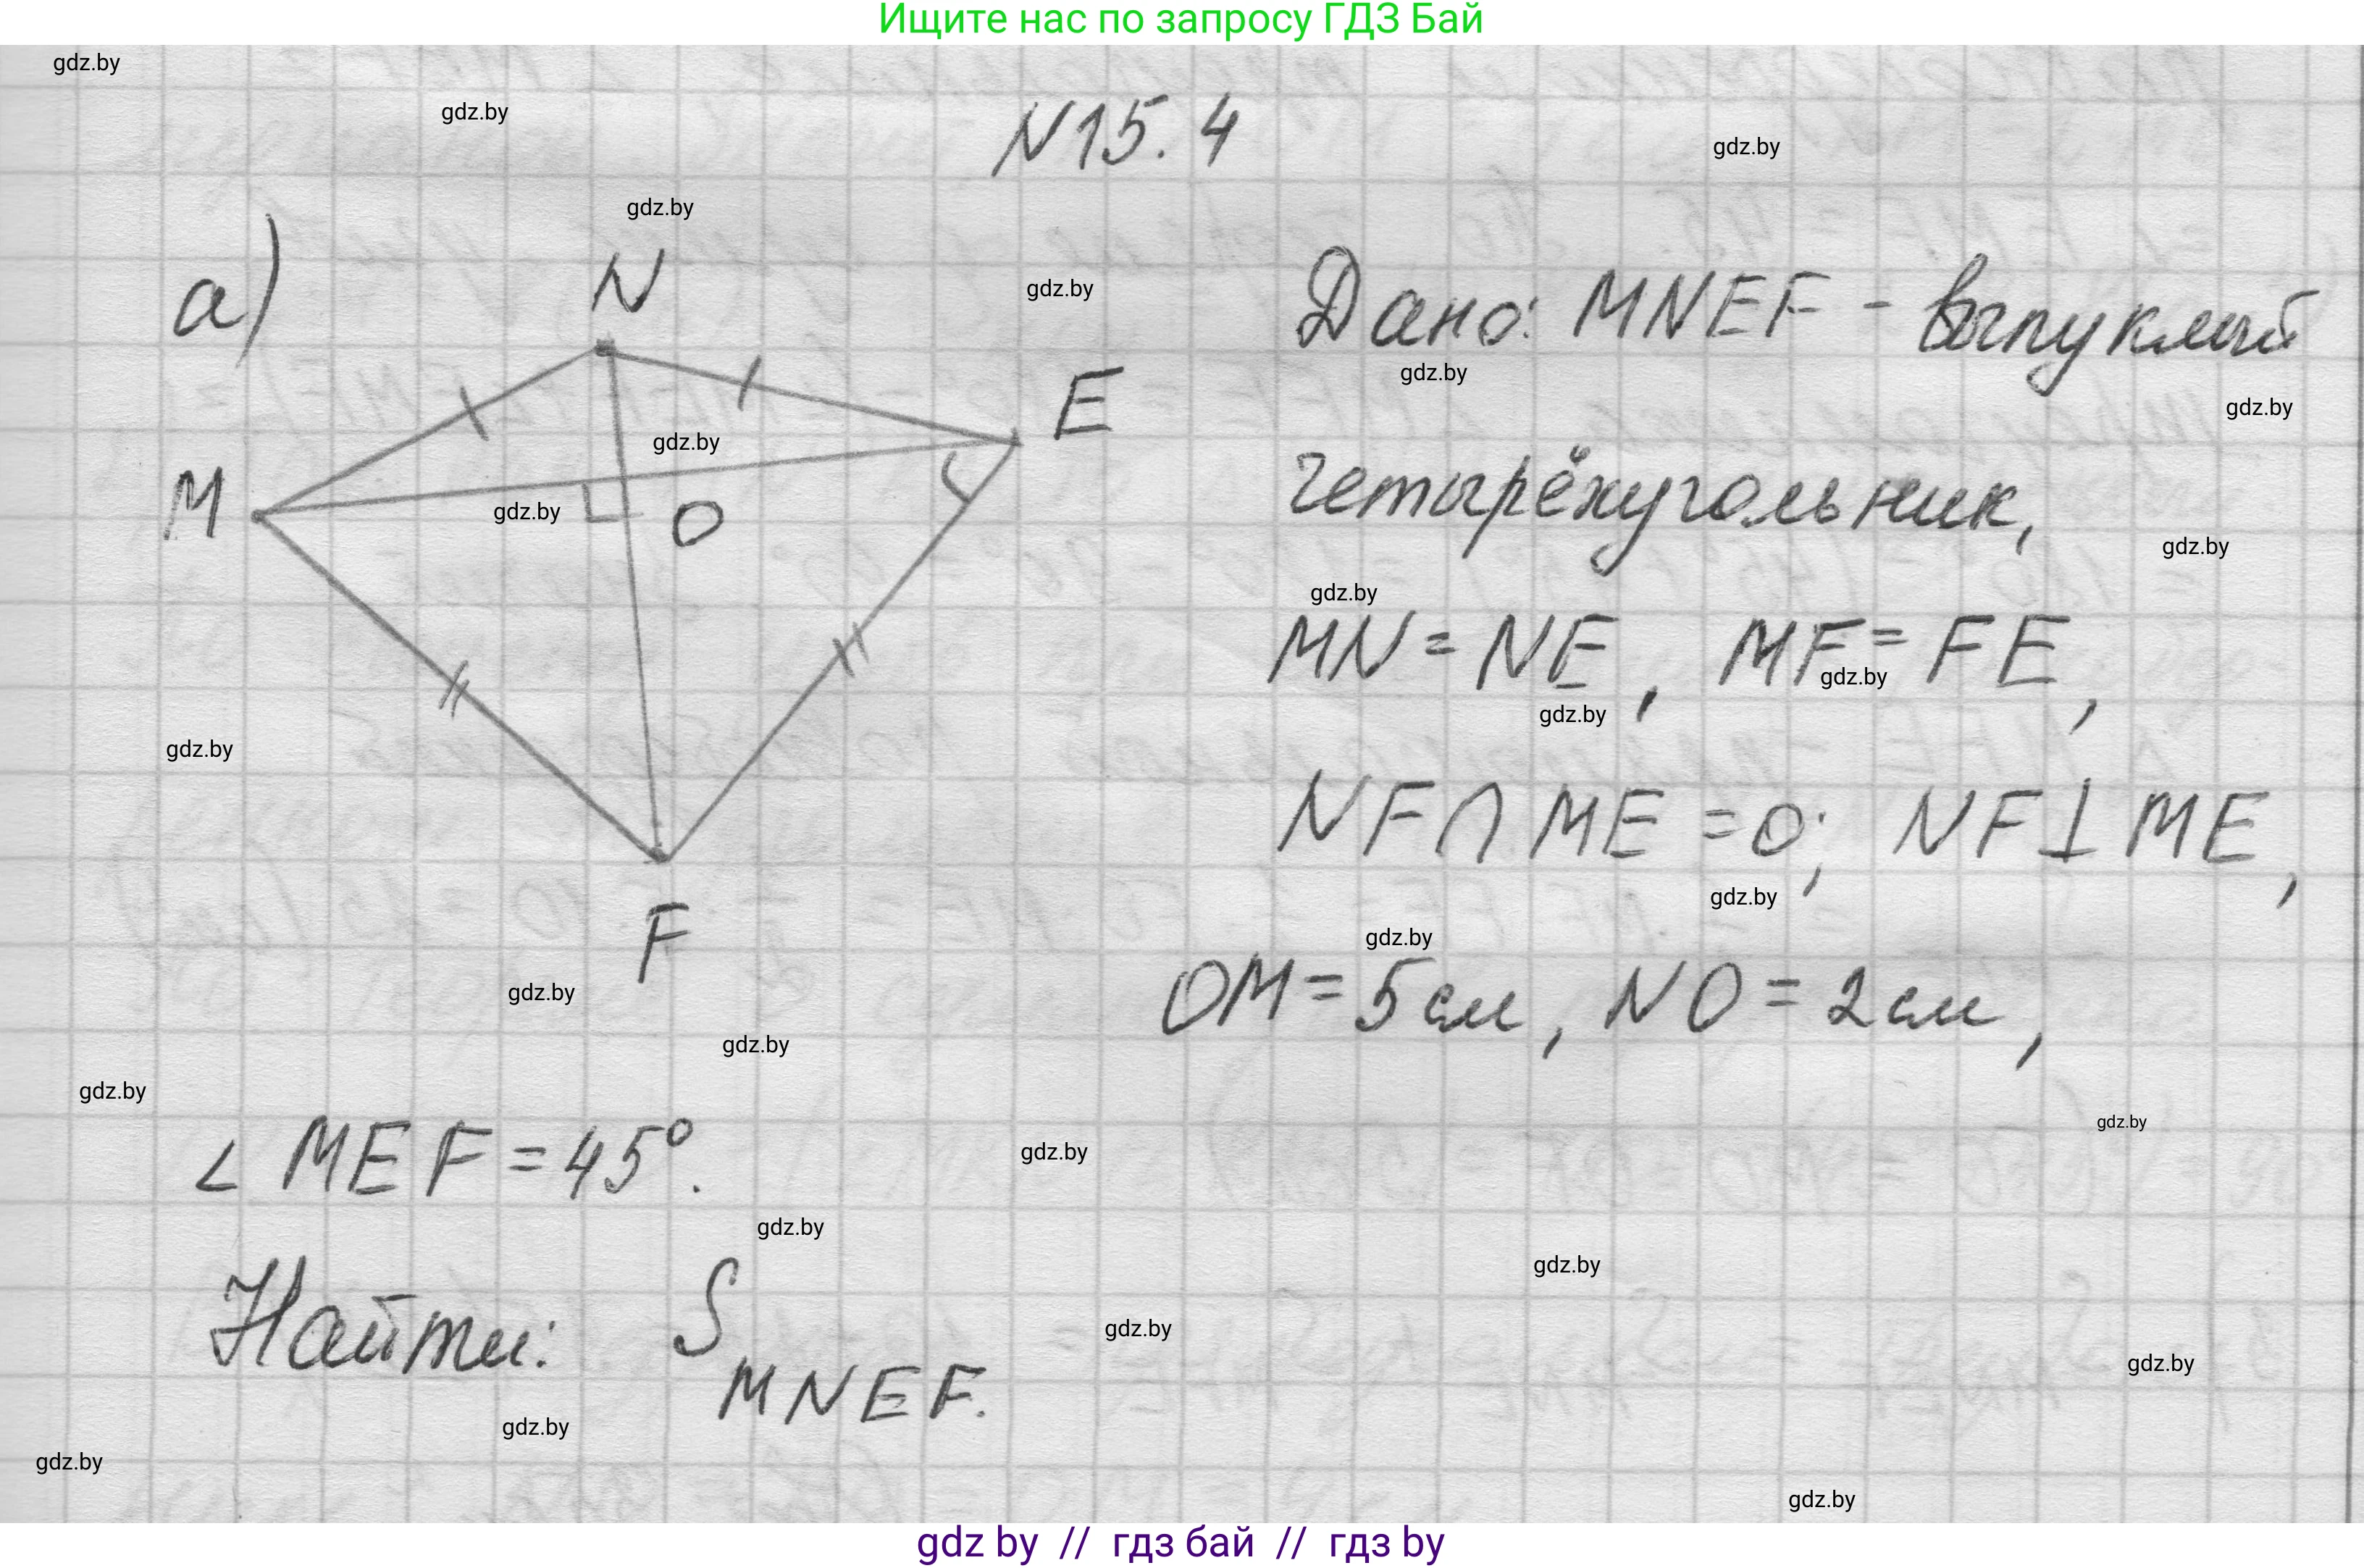 Ищите нас по запросу ГДЗ Бай
gdz.by
gdz.by
N15.4
gdz.by
gdz.by
а)
N
gdz.by
Дано: MNEF - выпуклый
gdz.by
E
gdz.by
gdz.by
M
gdz.by
O
четырёхугольник,
gdz.by
gdz.by
MN = NE, MF = FE,
gdz.by
gdz.by
gdz.by
NF∩ME = O; NF⊥ME,
gdz.by
F
gdz.by
gdz.by
OM = 5 см, NO = 2 см,
gdz.by
gdz.by
gdz.by
∠MEF = 45°.
gdz.by
gdz.by
gdz.by
Найти: S MNEF.
gdz.by
gdz.by
gdz.by
gdz.by
gdz.by
gdz by // гдз бай // гдз by